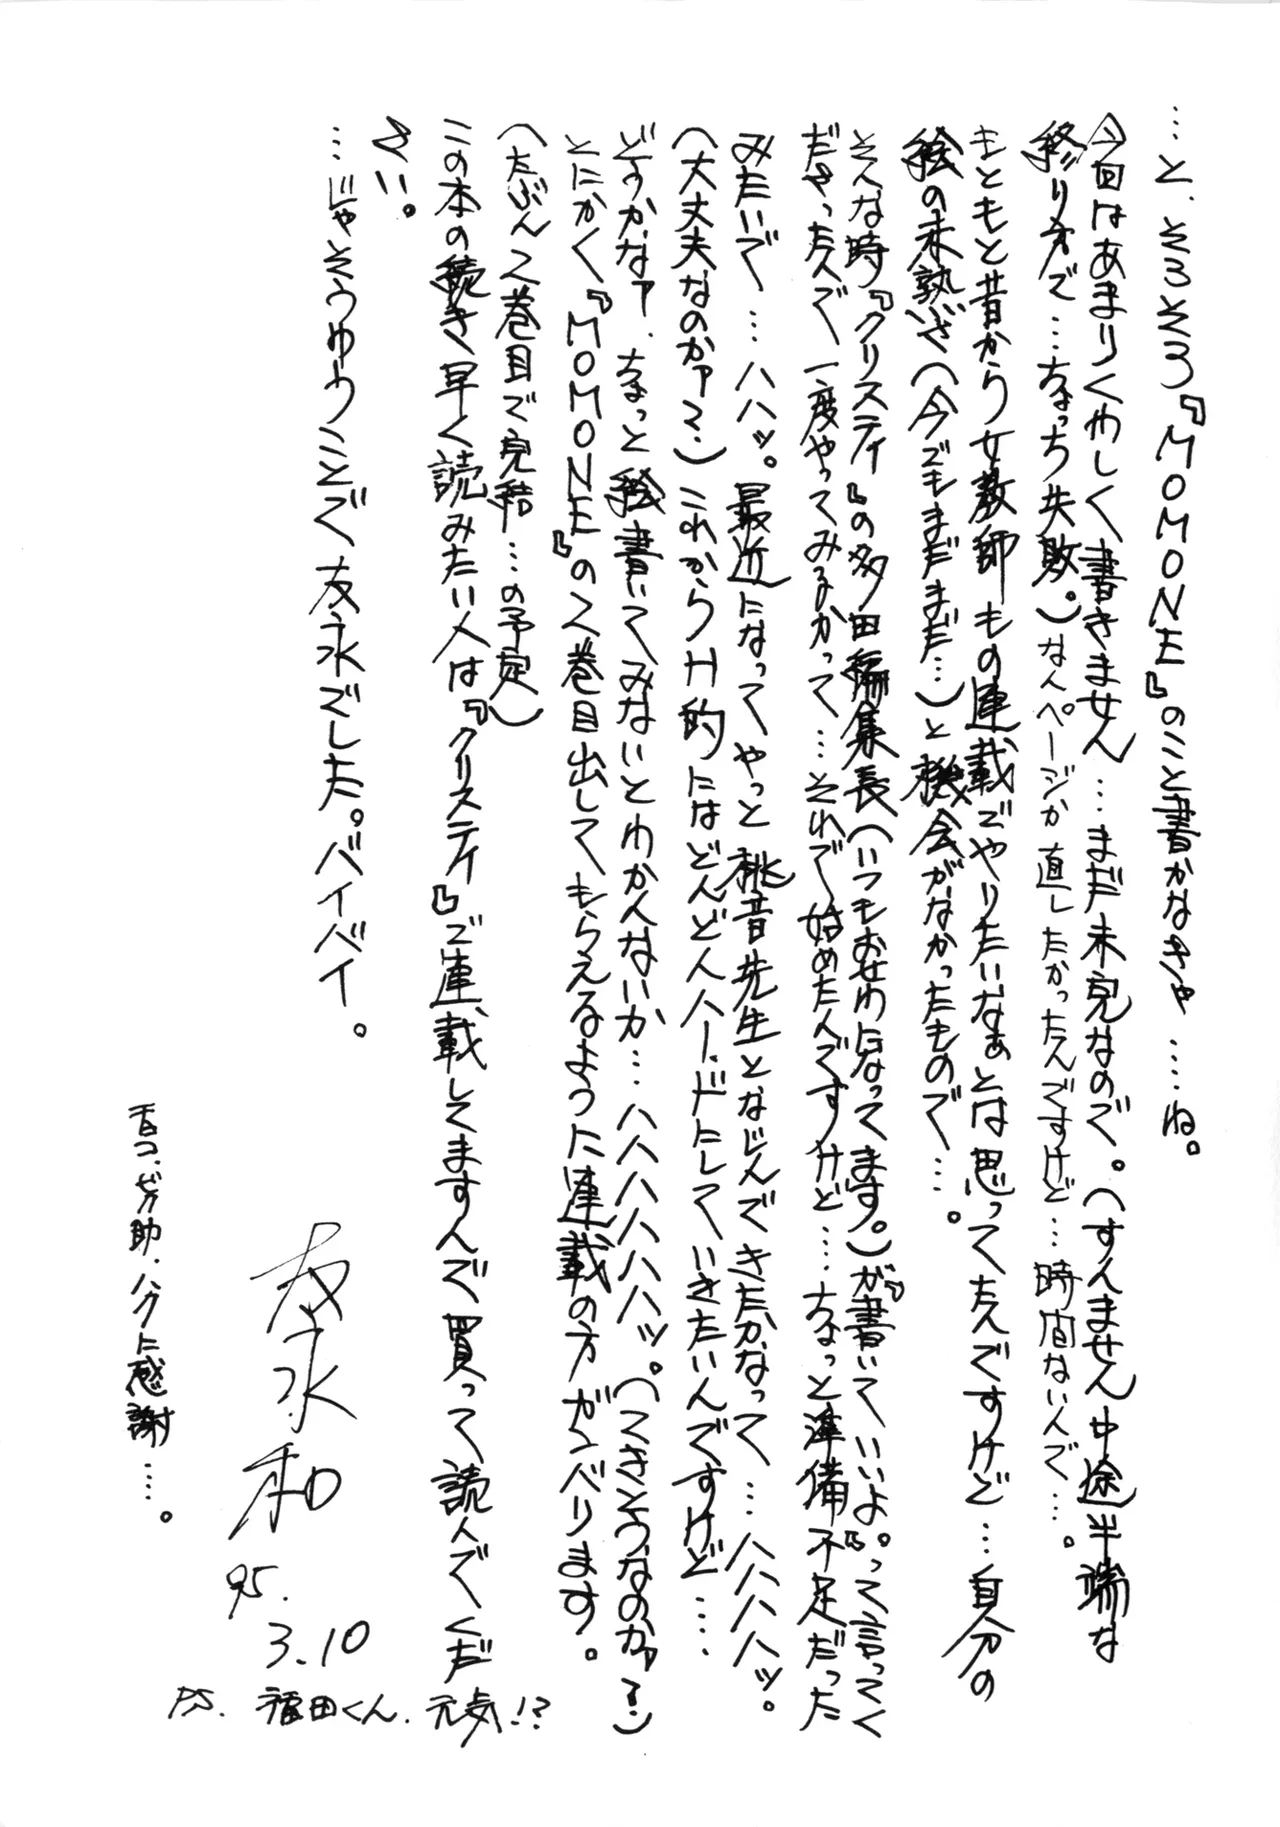 …と、そろそろ『MOMONE』のこと書かなきゃ……ね。
今回はあまりくわしく書きません…まだ未完なので。(すんません中途半端な
終り方で…ちょっち失敗。)なんページか直したかったんですけど…時間ないんで…。
もともと昔から女教師もの連載でやりたいなぁとは思ってたんですけど…自分の
絵の未熟さ(今でもまだまだ…)と機会がなかったもので…。
そんな時『クリスティ』の多田編集長(いつもおせわになってます。)が『書いていいよ。』って言ってく
ださったんで、一度やってみるかって…それで始めたんですけど……ちょっと準備不足だった
みたいで…ハハッ。最近になってやっと桃音先生となじんできたかなって…ハハハハッ。
(大丈夫なのかァ?)これからH的にはどんどんハードにしていきたいんですけど……
どうかなァ、ちょっと絵書いてみないとわかんないか…ハハハハハハッ。(てきとうなのかァ?)
とにかく『MOMONE』の2巻目出してもらえるように連載の方ガンバリます。
(たぶん2巻目で完結…の予定)
この本の続き早く読みたい人は『クリスティ』で連載してますんで買って読んでくだ
さい。
…じゃそうゆうことで友永でした。バイバイ。
友永和
95.
3.10
P.S. 福田くん、元気!?
助、ハクに感謝……。